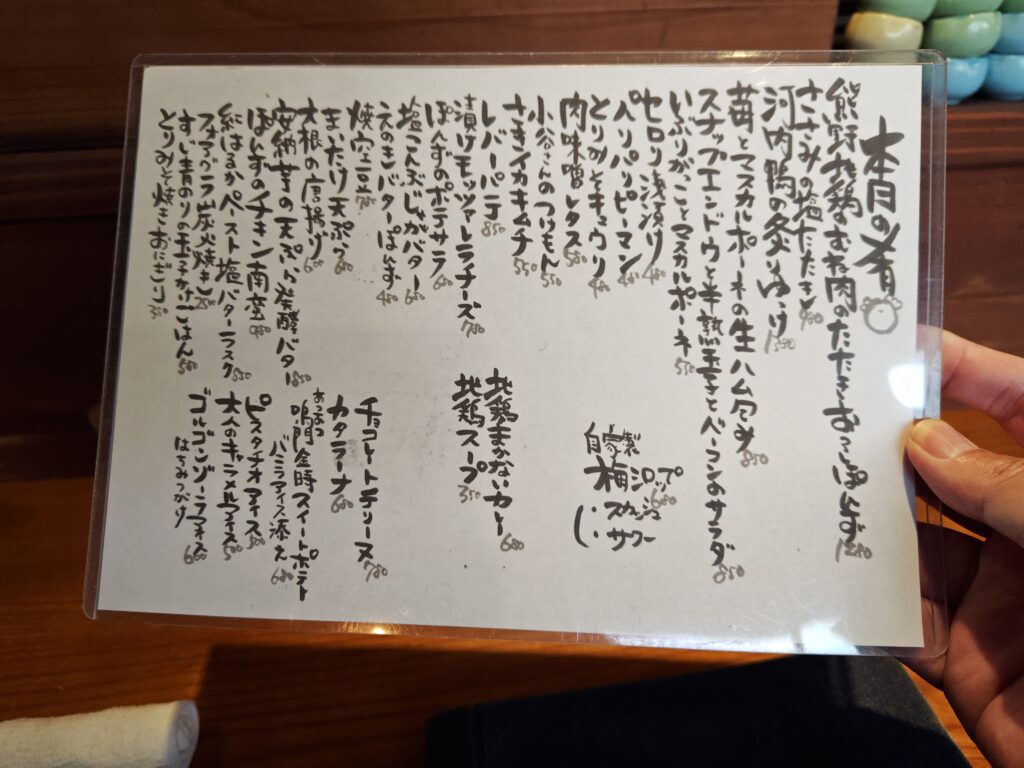 本月の肴
熊野地鶏のむね肉のたたきおろしぽんず 1280
ささみの塩たたき 980
河内鴨の炙りゆっけ
苺とマスカルポーネの生ハム包み 850
スナップエンドウと半熟玉子とベーコンのサラダ 850
いぶりがっことマスカルポーネ 550
セロリ浅漬け 480
パリパリピーマン
とりみそキュウリ
肉味噌レタス 580
小谷さんのつけもん 550
さきイカキムチ 550
レバーパテ 850
漬けモッツァレラチーズ 780
ぽんずのポテサラ 680
塩こんぶじゃがバター 680
えのきバターぽんず 480
焼空豆
まいたけ天ぷら 680
大根の唐揚げ 680
安納芋の天ぷら発酵バター 850
ぽんずのチキン南蛮 980
紅はるかペースト塩バターラスク 550
フォアグラ炭火焼き
すじ青のりの玉子かけごはん 580
とりみそ焼きおにぎり 350
自家製
梅シロップ 680
スカッシュ
サワー
地鶏まかないカレー 680
地鶏スープ 350
チョコレートテリーヌ 780
カタラーナ 680
あつあつ
鳴門金時スイートポテト
バニラアイス添え 680
ピスタチオアイス
大人のキャラメルアイス
ゴルゴンゾーラアイス
はちみつがけ